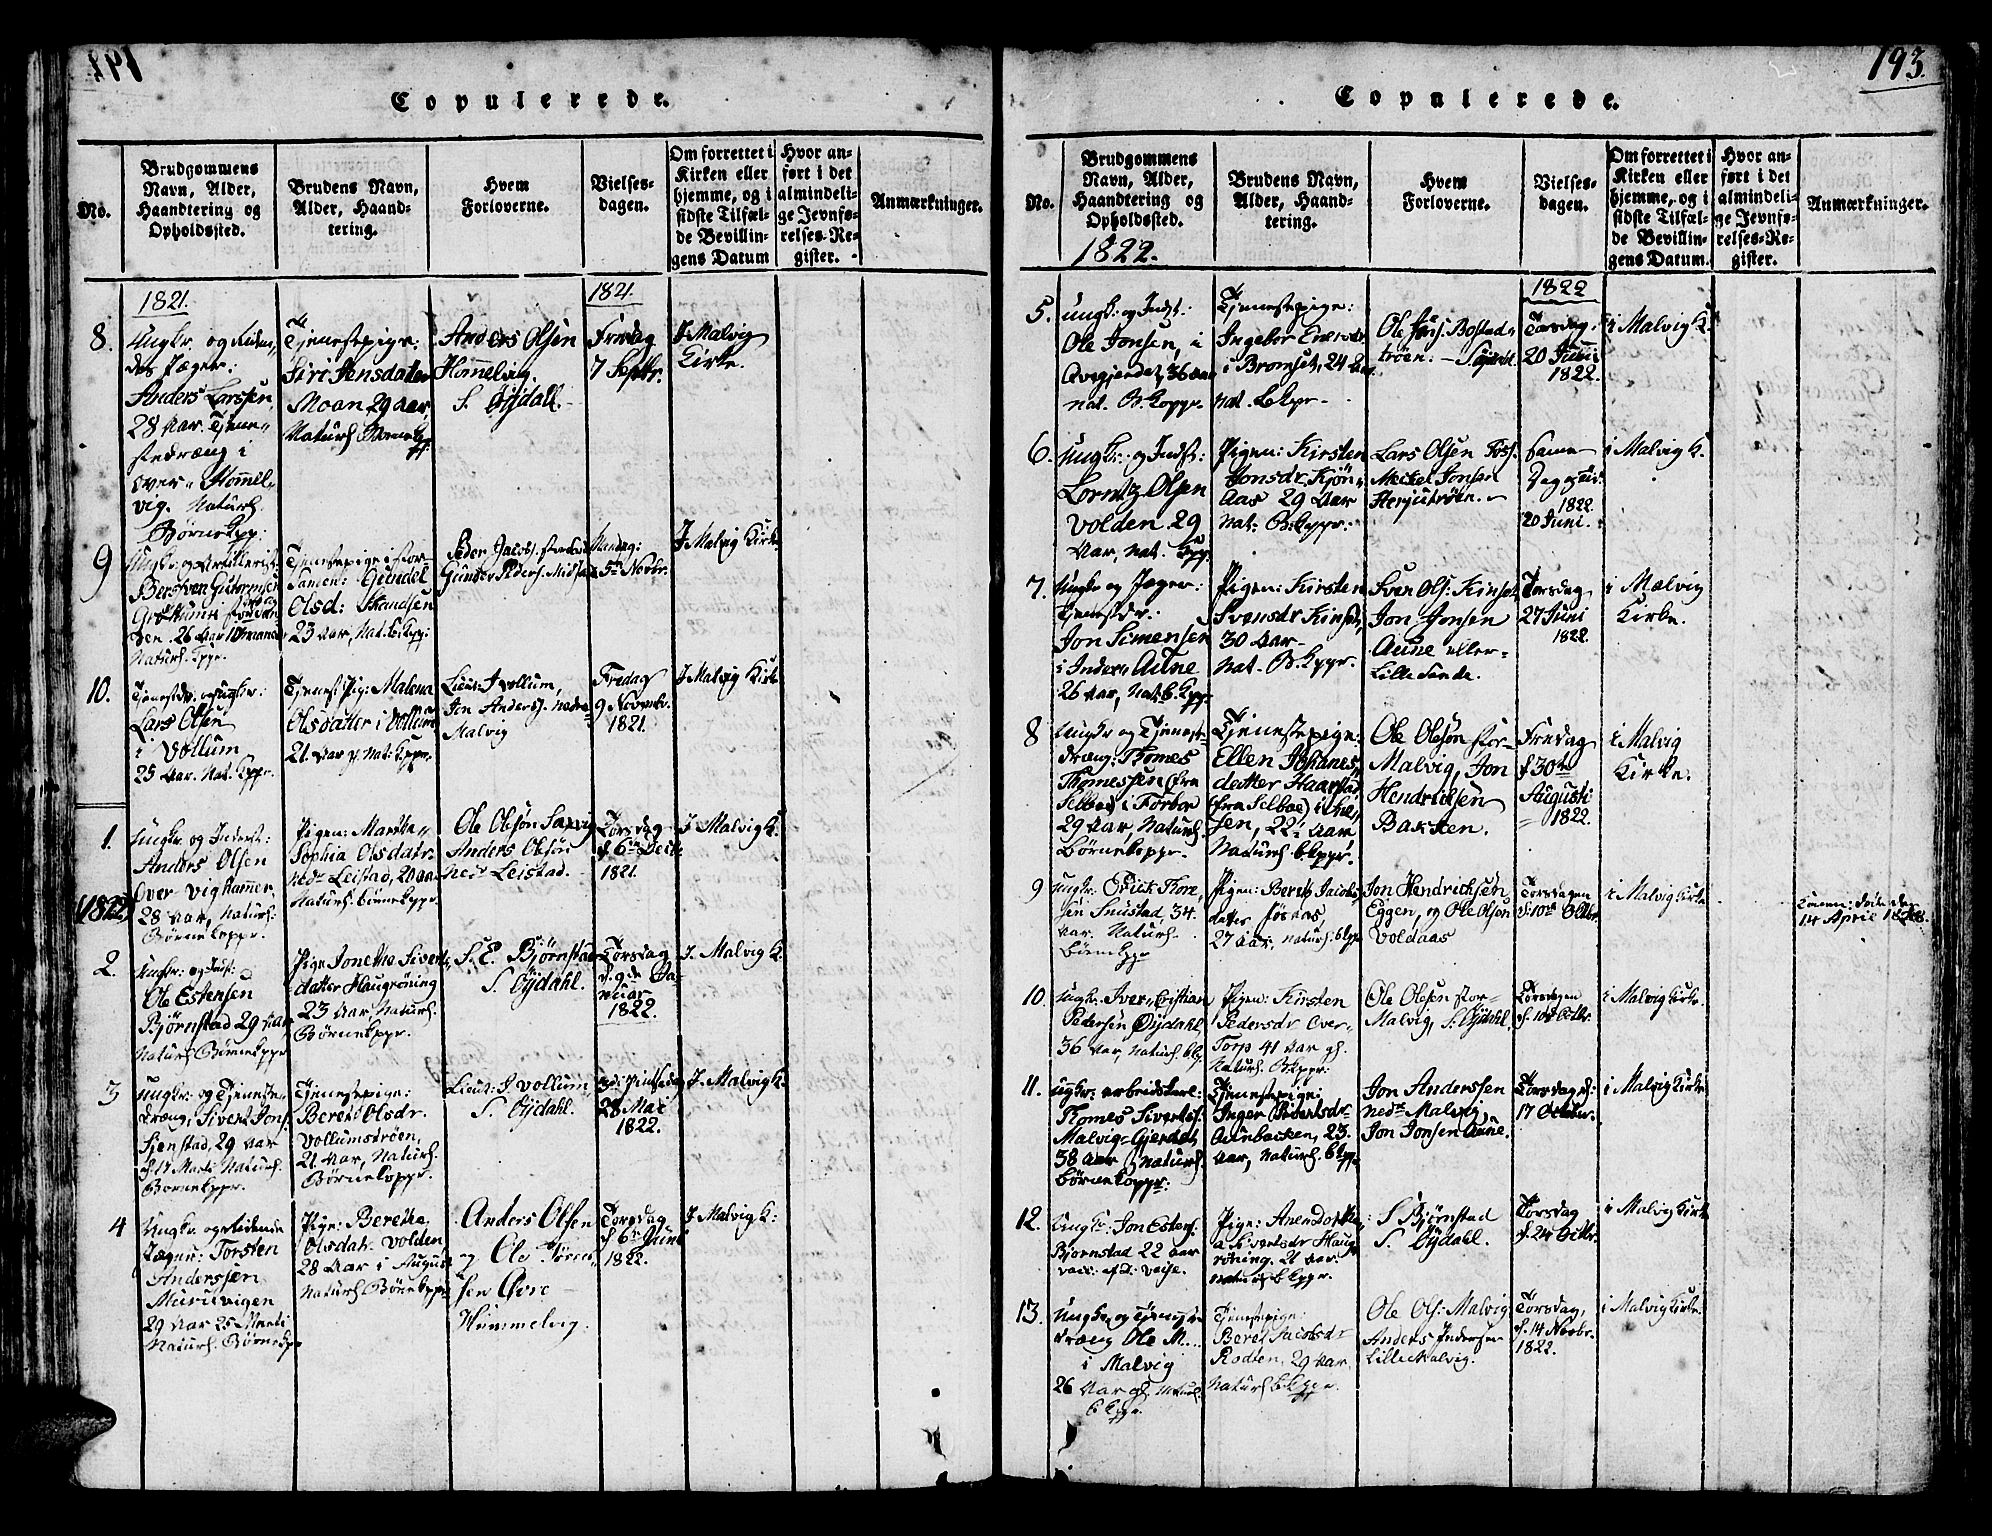 193.
Copulerede.
No.
Brudgommens
Navn, Alder,
Haandtering og
Opholdssted.
Brudens Navn,
Alder, Haand-
tering.
Hvem
Forloverne.
Vielses-
dagen.
Om forrettet i
Kirken eller
hjemme, og i
sidste Tilfæl-
de Bevillin-
gens Datum
Hvor an-
ført i det
almindeli-
ge Jevnfø-
relses-Re-
gister.
Anmærkninger.
1821.
1821.
8.
Ungkr. og
Jæger:
Anders Larssen,
28 Aar, Tjene-
stedræng i
over-Hommel-
vig. Naturl.
Børnekpp:
Tjenestepige:
Siri Jensdatter
Moan 29 Aar,
Naturl. Børnekp
Anders Olsen
Hommelvig.
S. Øydahl.
Fredag
7 Septbr.
I Malvig
Kirke.
9
Ungkr. og
26 Aar
Naturl. Kppr.
Tjenestepige i Stor-
Gundel
Olsd:
23 Aar, Nat.
Peder Jacobs.
Gunder Peders.
Mandag:
5te Novbr.
I Malvig Kirke
10.
Tjenestedr. og Ungkr:
Lars Olsen
i Vollum
25 Aar. Nat. Kppr.
Tjenest. Pig: Malena
Olsdatter i Vollum
21 Aar Nat. Kppr.
Lieut: I Vollum,
Jon Anders. nedre
Malvig
Fredag
9 Novemb.
1821.
I Malvig Kirke
1.
(1822)
Ungkr. og Inderst:
Anders Olsen
Over Vighammer
28 Aar, Naturl:
Børnekoppr.
Pigen: Martha
Sophia Olsdatr.
nedre Leistad, 20 Aar
Naturl. Børnekppr.
Ole Olsøn Saxvig
Anders Olsøn
nedre Leistad.
Torsdag
d. 6te Decbr
1821.
I Malvig K.
2.
Ungkr: og Indst:
Ole Estensen
Bjørnstad 29 Aar
Naturl. Børnekppr
Pige Jonetta Siverts
datter Haugrøning
23 Aar, Naturl.
Børnekppr.
S. E. Bjørnstad
S. Øydahl.
Torsdag
d. 9de Ja-
nuar
1822.
I Malvig K.
3
Ungkr: og Tjeneste-
dræng, Sivert Jons.
Sjenstad, 29 Aar
d. 17 Marti Naturl.
Børnekppr.
Tjenestepige:
Beret Olsdr.
Vollumsdrøen,
21 Aar, Naturl.
Børnekoppr.
Lieut: I Vollum
S. Øydahl.
3die Pintsedag
28 Mai
1822.
I Malvig K.
4
Ungkr. og Ridende
Jæger: Torsten
Anderssen
Muruvigen
29 Aar 25 Marti
Naturl. Børnekp
Pige: Beretha
Olsdatr. Volden
28 Aar i August
Naturl Børnekpp
Anders Olsen
og Ole
sen Øvre
Hummelvig.
Torsdag
d. 6te Juni
1822.
I Malvig K:
Copulerede.
No.
Brudgommens
Navn, Alder,
Haandtering og
Opholdssted.
1822.
Brudens Navn,
Alder, Haand-
tering.
Hvem
Forloverne.
Vielses-
dagen.
Om forrettet i
Kirken eller
hjemme, og i
sidste Tilfæl-
de Bevillin-
gens Datum.
Hvor an-
ført i det
almindeli-
ge Jevnfø-
relses-Re-
gister.
Anmærkninger.
1822
5.
Ungk: og Indst:
Ole Jonsen, i
Avegjerdet, 36 Aar
nat. B. Koppr.
Tjenestepige:
Ingebor
i Bromset, 24 Aar
nat. B.kpr.
Ole Bostad-
trøen:
Torsdag
20 Juni
1822.
i Malvig K.
6.
Ungkr. og Indst:
Lorntz Olsen
Volden 29
Aar, nat. Kpp.
Pigen: Kirsten
Jonsdr. Kjøn-
aas 29 Aar
nat: B. kppr:
Lars Olsen
Meckel Jonsen
Herjutrøen.
Samme
Dag og Tid.
1822.
20 Juni.
i Malvig K.
7.
Ungkr og Jæger:
Tjenestdr.:
Jon Simensen
i Inder-Aune
26 Aar, Nat. b. kpp.
Pigen: Kirsten
Svensdr Kinset,
30 Aar
Nat. B. kppr.
Sven Ols: Kinset
Jon Jonsen
Aune eller
Lillesande.
Torsdag
27 Juni
1822.
i Malvig
Kirke.
8
Ungkr og Tjenest-
dræng: Thomes
Thomessen (fra
Selboe) i Forbor
29 Aar, Naturl.
Børnekoppr.
Tjenestepige:
Ellen Johanes-
datter Haarstad
(fra Selboe) i
22 Aar
Naturl. b.kppr.
Ole Olsøn Stor-
Malvig, Jon
Hendrichsen
Bakken.
Fredag
d. 30te
Augusti
1822.
i Malvig
Kirke.
9
Ungkr. Erick Thore
sen Snustad, 34
Aar. Naturl.
Børnekppr
Pigen: Beret Jacobs
datter
27 Aar, Naturl. b.kpp
Jon Hendrichsen
Eggen, og Ole Olsøn
Voldaas
Torsdagen
d: 10de Octbr.
i Malvig Kirke
14 April
10.
Ungkr. Iver Cristian
Pedersen Øydahl,
36 Aar, Naturl. bkp.
Pigen: Kirsten
Pedersdr Over-
Torp 41 Aar gl.
Naturl. Bkppr:
Ole Olsen Stor-
Malvig, S: Øydahl.
Torsdagen
d. 10de Octbr.
i Malvig Kirke.
11.
Ungkr: arbeidskarl:
Thomes Siverts.
Malvig-Gjerdet,
38 Aar naturl.
børnekoppr:
Tjenestepige:
Inger Sivertsdr
Aunbacken, 23
Aar, Naturl. bkpp
Jon Anderssen
nedre Malvig
Jon Jonsen Aune.
Torsdag d:
17 October.
i Malvig Kirke
12.
Ungkr: Jon Estens.
Bjørnstad 22 Aar
vacc: af D: Veise.
Pige: Anen Dorthe
a Sivertsdr Haug
røning. 21 Aar.
Naturl bkppr.
S Bjørnstad
S. Øydahl.
Torsdag
d. 24 Octbr.
i Malvig Kirke
13.
Ungkr. og Tjeneste
dræng Ole M...
i Malvig
26 Aar gl. Naturl.
b.kppr.
Tjenestepige
Beret Jacobsdr
Rodten, 29 Aar,
Naturl bkppr.
Ole Ols: Malvig
Anders Pedersen
LilleMalvig.
Torsdag,
d. 14 Novbr.
1822.
i Malvig Kirke.